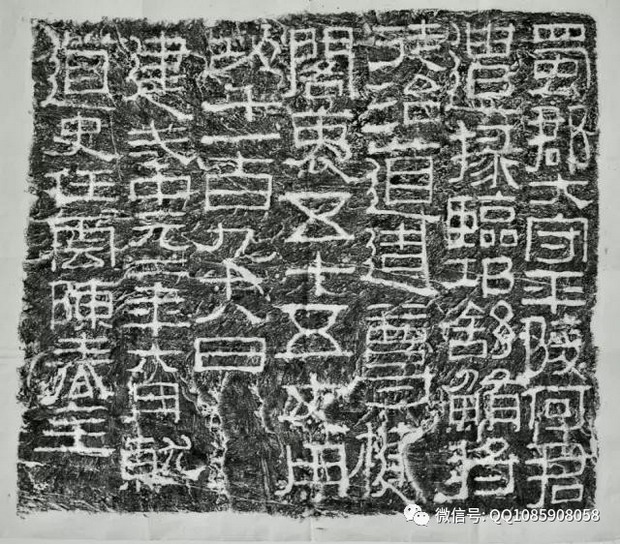 蜀郡大守平陵何君
遣掾臨邛舒鮪將
徒治道造尊楗
閣袤五十五丈用
功千一百九十八日
建武中元二年六月就
道史任雲陳春主
微信号: QQ1085908058